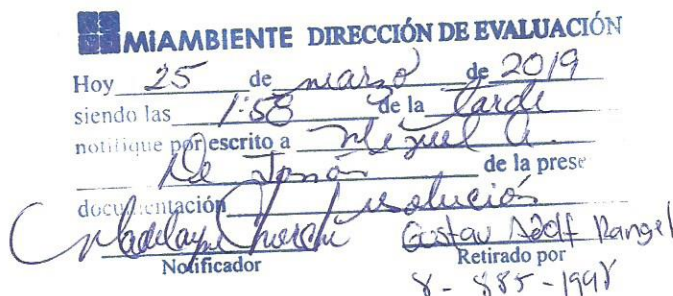 MiAMBIENTE DIRECCIÓN DE EVALUACIÓN
Hoy 25 de marzo de 2019
siendo las 1:58 de la tarde
notifique por escrito a Miguel A.
De
de la prese
documentación resolución
Gustav Adolf Rangel
Notificador Retirado por
8-885-1998